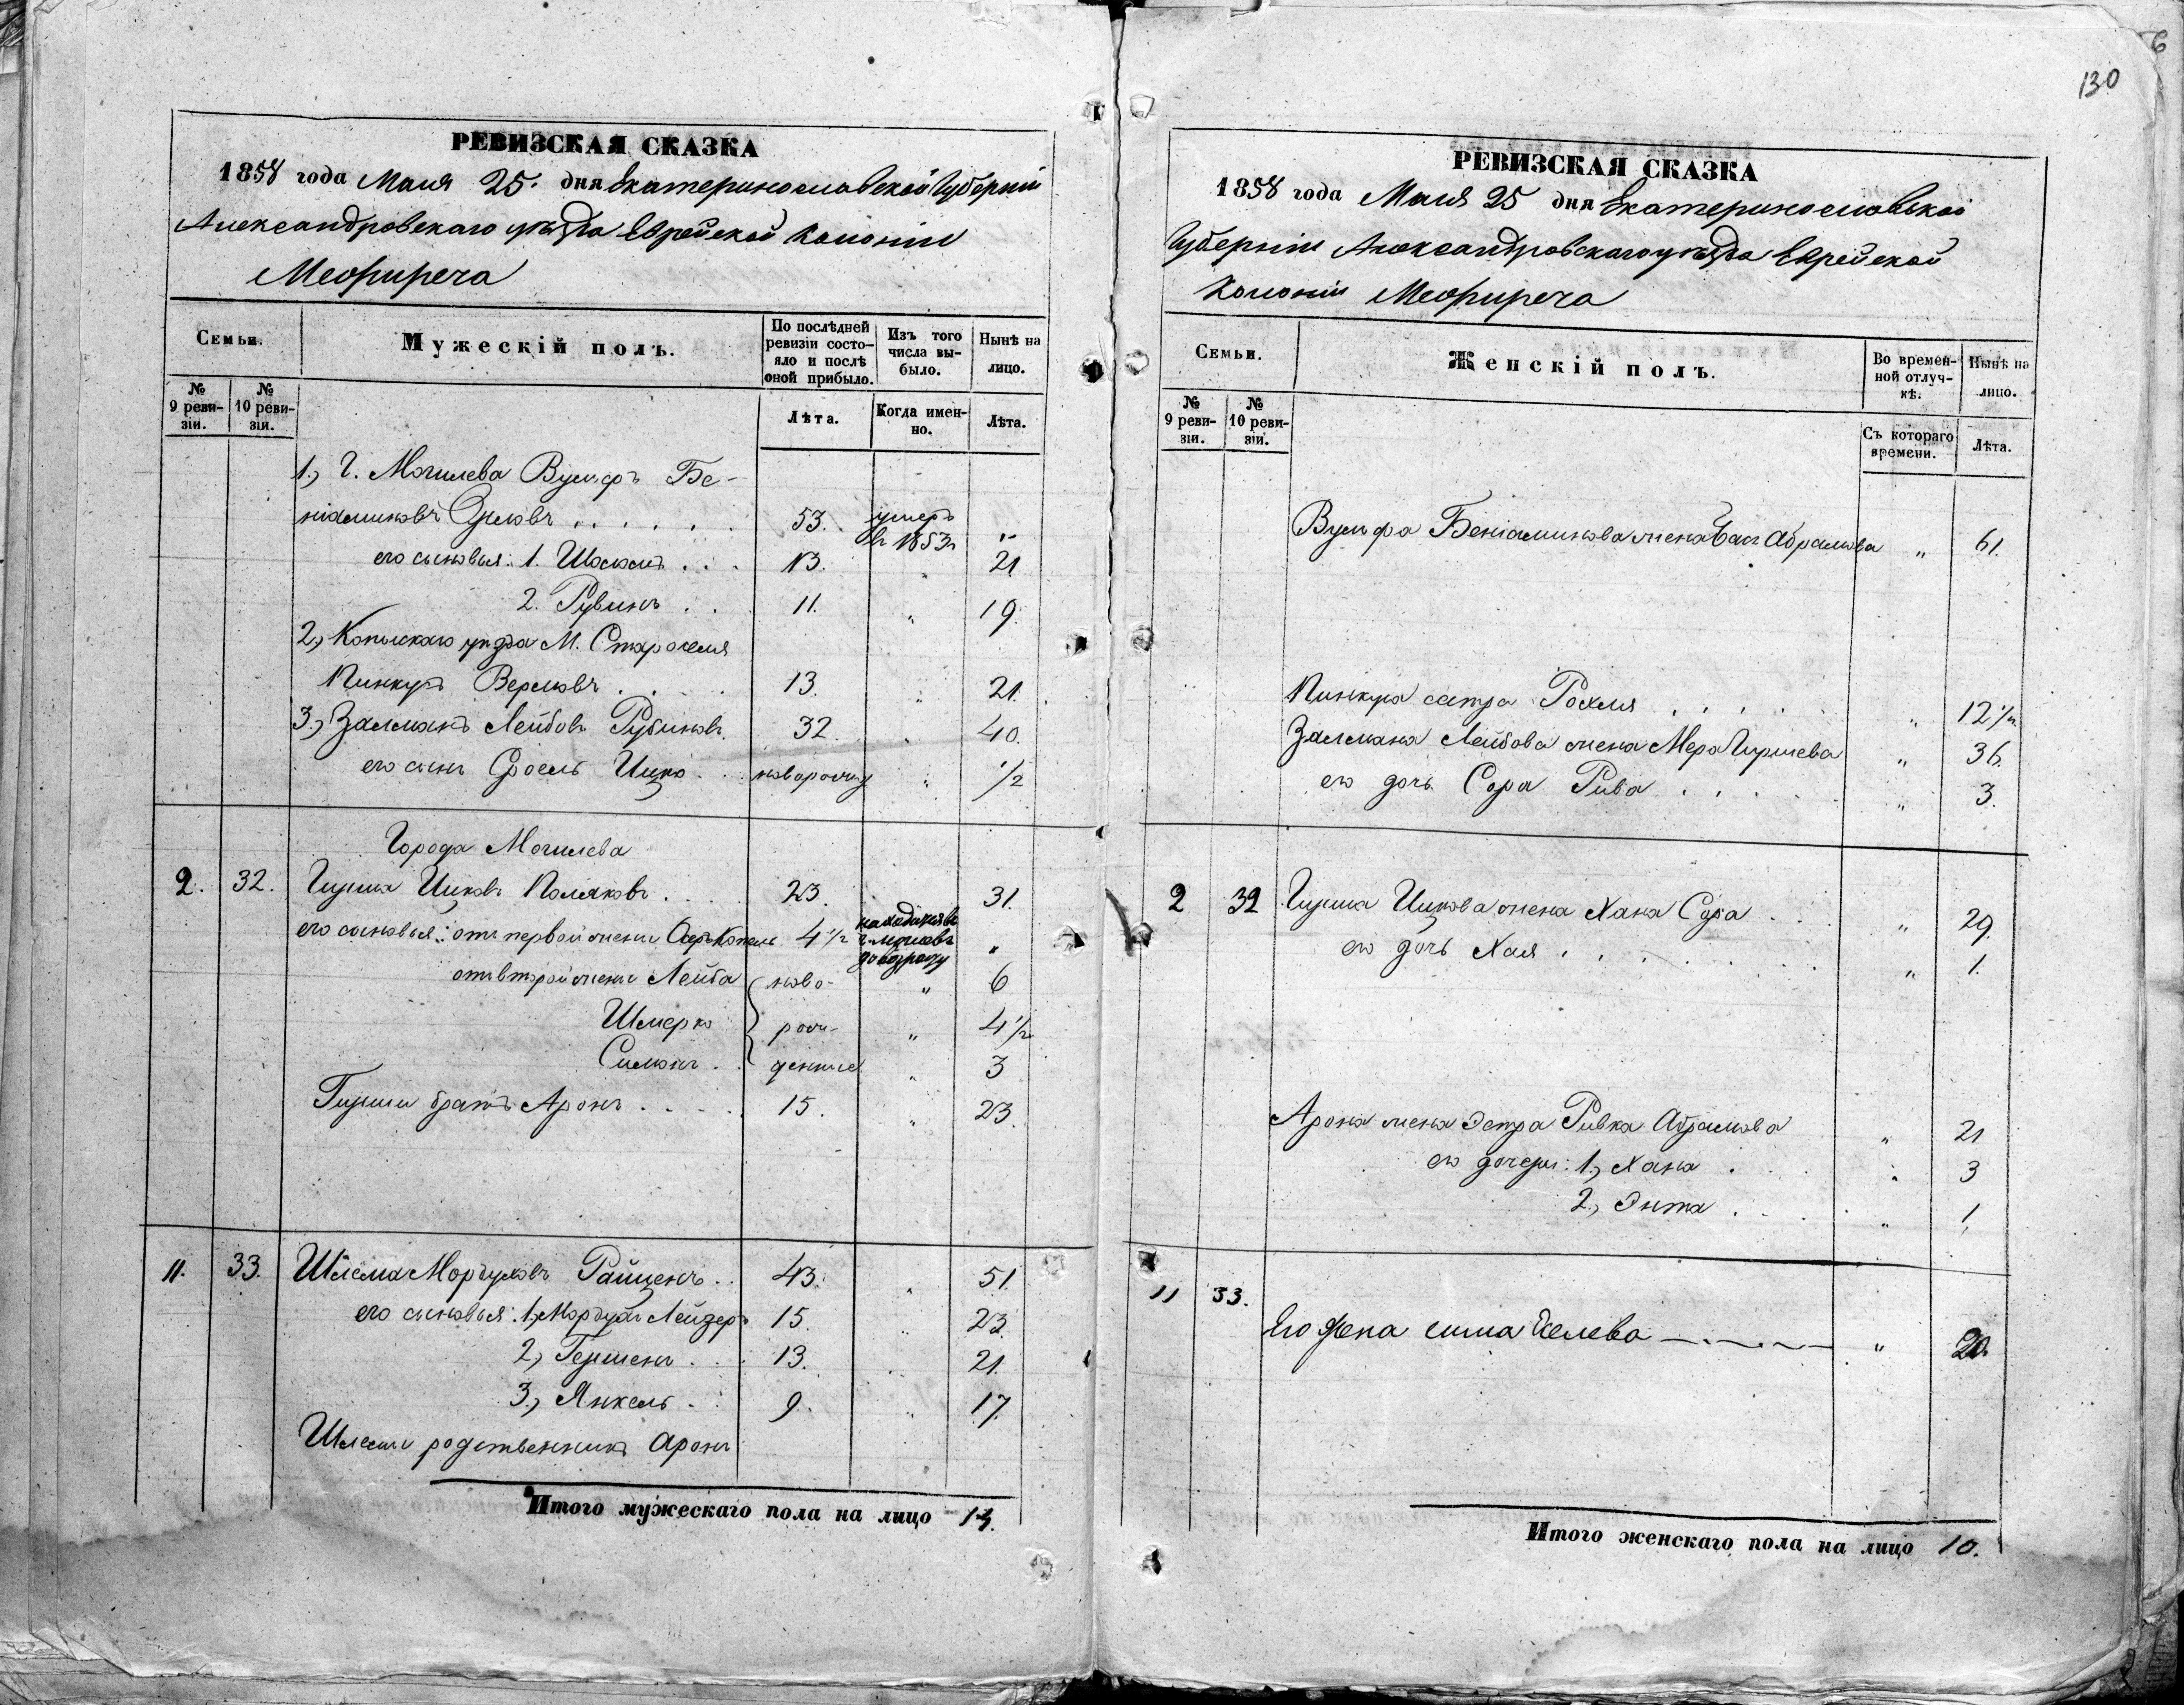 6
130
РЕВИЗСКАЯ СКАЗКА
1858 года Маия 25. дня Екатеринославской Губерніи
Александровскаго уѣзда Еврейской Колоніи
Межиреча
Семьи.
Мужескій полъ.
По послѣдней ревизіи состо-
яло и послѣ
оной прибыло.
Изъ того
числа вы-
было.
Нынѣ на
лицо.
№
9 реви-
зіи.
№
10 реви-
зіи.
Лѣта.
Когда имен-
но.
Лѣта.
1., Г. Могилева Вульфъ Бе-
ніаминовъ . . . . . . 53. умеръ в 1853 г "
его сыновья: 1. . . . 13. " 21
2. Рувинъ . . 11. " 19.
2., Копыскаго уѣзда М. Староселья
Пинкусъ Берковъ . . . . 13. " 21.
3., Залманъ Лейбовъ Рубиновъ. 32. " 40.
его сынъ Сроель Ицко . . " 1/2
Города Могилева
2. 32. Гирша Ицковъ Поляковъ . . . . 23. 31.
его сыновья: отъ первой жены 4 1/2 "
отъ второй жены Лейба ново- " 6
Шмерко рож- " 4 1/2
Симонъ . . денные " 3
Гирши братъ Аронъ . . . . . 15. " 23.
11. 33. Шлема Мордуховъ Райценъ . . 43. " 51.
его сыновья: 1., Мордухъ Лейзеръ 15. " 23.
2., Гершенъ . . . 13. " 21.
3., Янкель . . 9. " 17.
Шлемы родственникъ Аронъ
Итого мужескаго пола на лицо 13.
РЕВИЗСКАЯ СКАЗКА
1858 года Маия 25 дня Екатеринославской
Губерніи Александровскаго уѣзда Еврейской
Колоніи Межиреча
Семьи.
Женскій полъ.
Во времен-
ной отлуч-
кѣ.
Нынѣ на
лицо.
№
9 реви-
зіи.
№
10 реви-
зіи.
Съ котораго
времени.
Лѣта.
Вульфа Беніаминова жена Абрамова " 61.
Пинкуса сестра Рохля . . . . . " 12 1/2
Залмана Лейбова жена Мера Гиршева " 36.
его дочь Сора Рива . . . . " 3.
2 32 Гирша Ицкова жена Хана Сора . . " 29.
его дочь Хая . . . . . . . " 1.
Арона жена Эстра Ривка Абрамова " 21
его дочери: 1., Хана . . . . " 3
2., Энта . . . . " 1
11 33.
Его жена Сима " 20.
Итого женскаго пола на лицо 10.